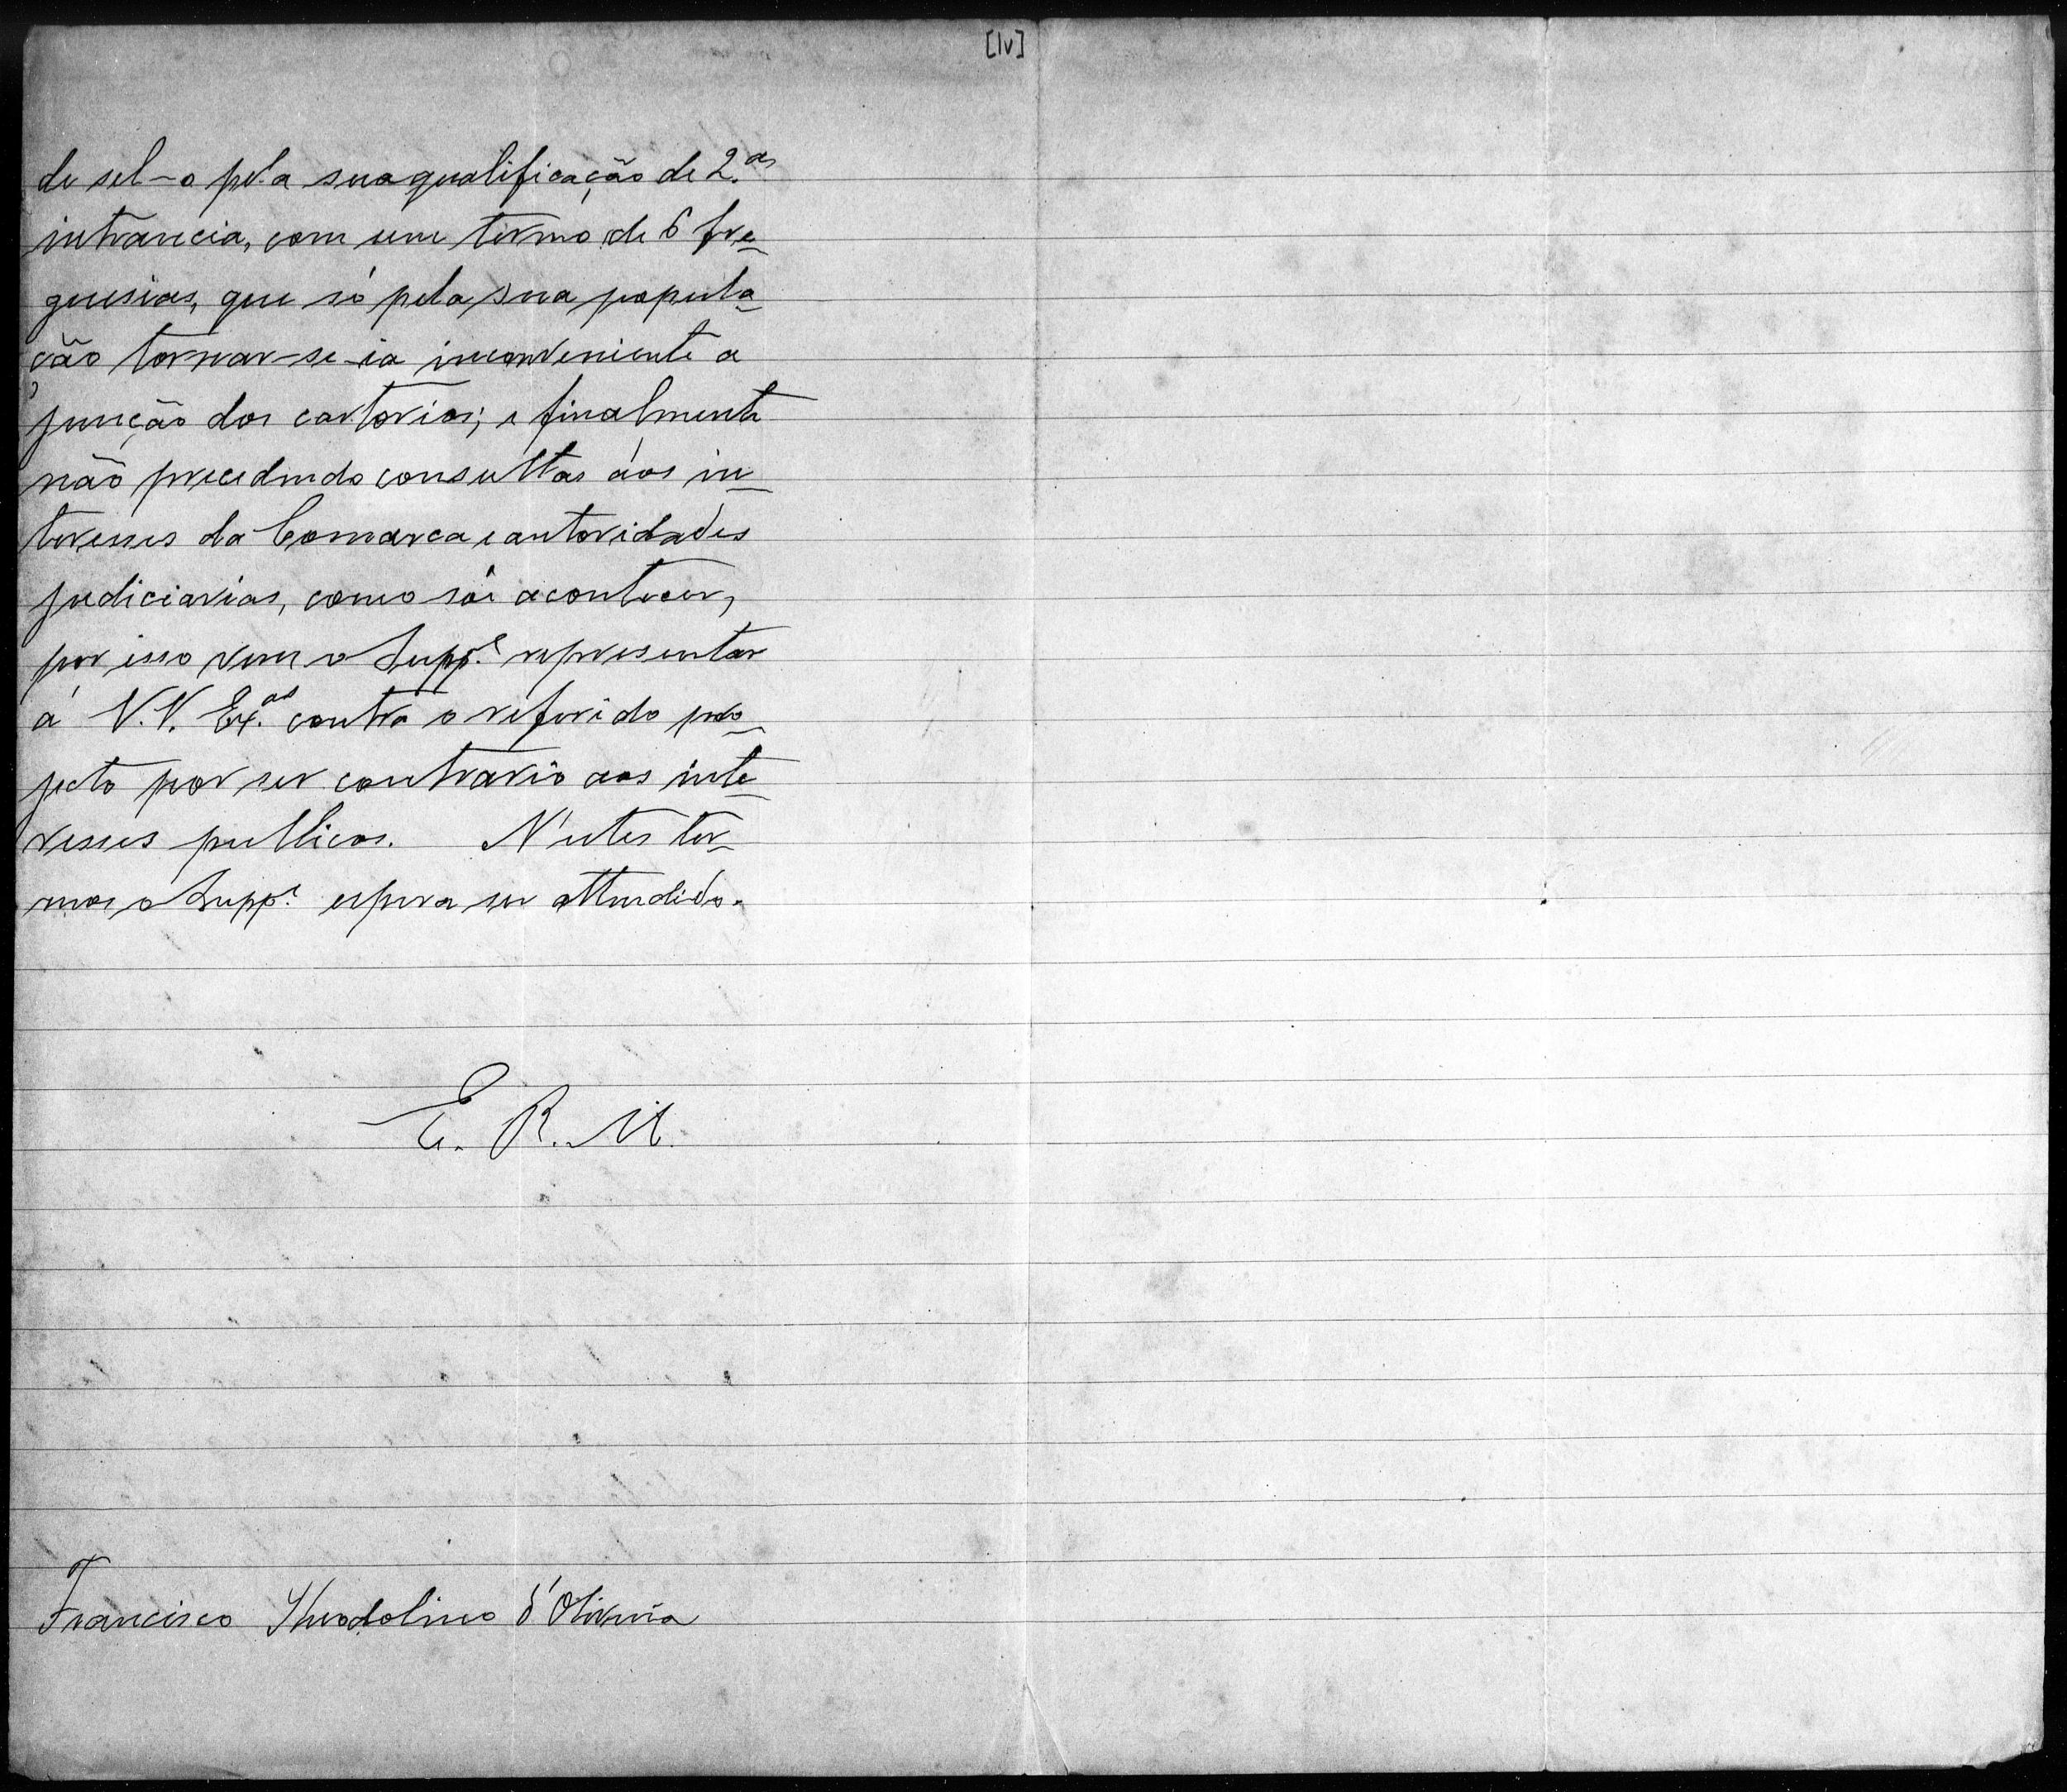 [1v]
de sel-o pela sua qualificação de 2.as
intrancia, com um termo de 6 fre-
guesias, que só pela sua popula-
ção tornar-se-ia inconveniente a
juncção dos cartorios; e finalmente
não precedendo consultas áos in-
teresses da Comarca e autoridades
judiciarias, como sôi acontecer,
por isso vem o Supp.e representar
á V.V. Ex.as contra o referido pro-
jecto por ser contrario aos inte-
resses publicos. N'estes ter-
mos o Supp.e espera ser attendido.
E. R. M.
Francisco Theodolino d'Oliveira